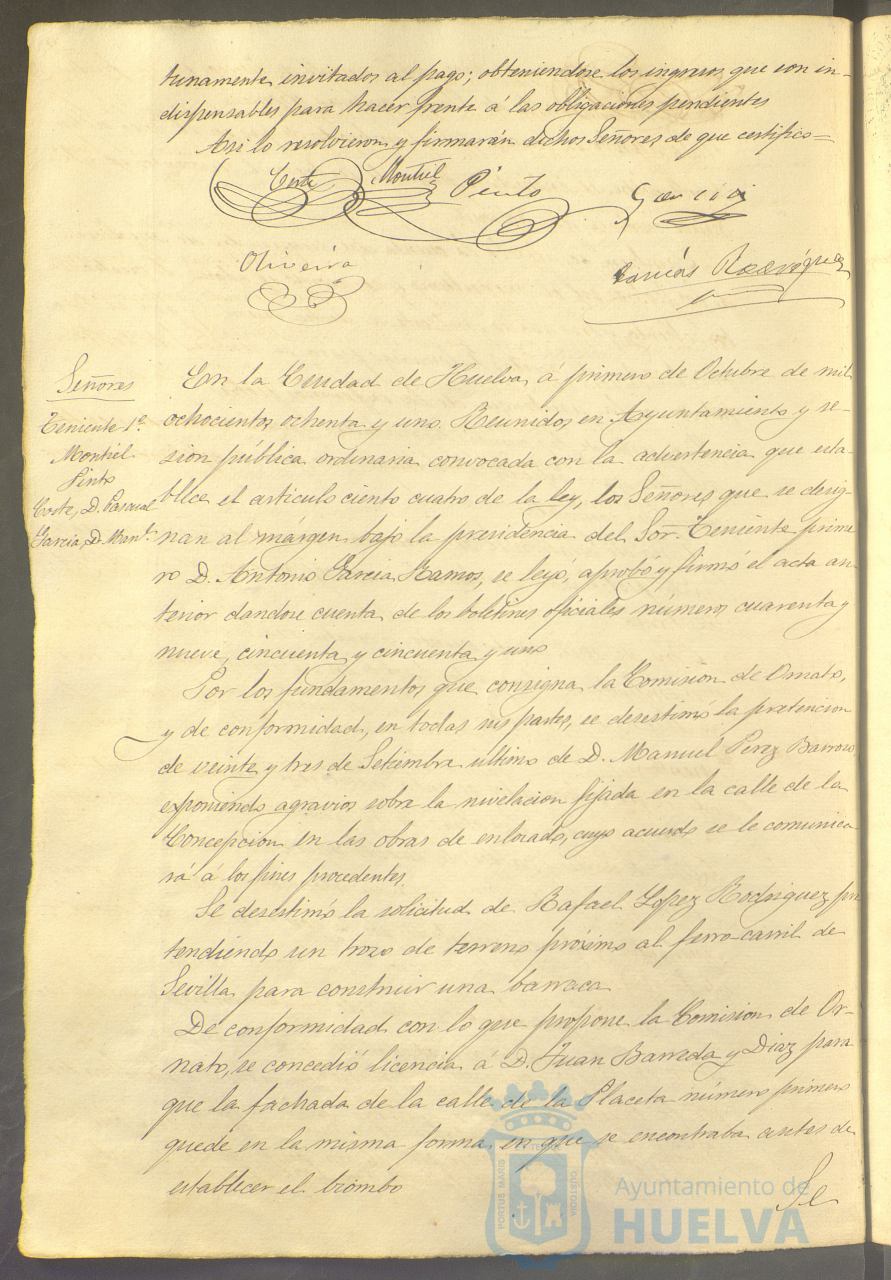 tunamente invitados al pago; obteniendose los ingresos que son in-
dispensables para hacer frente á las obligaciones pendientes
Asi lo resolvieron y firmarán dichos Señores de que certifico=
Coste Montiel Pinto Garcia
Oliveira
Señores
Teniente 1º
Montiel
Pinto
Coste, D. Pascual
Garcia, D. Manl.
En la Ciudad de Huelva, á primero de Octubre de mil
ochocientos ochenta y uno. Reunidos en Ayuntamiento y se-
sion pública ordinaria convocada con la advertencia que esta-
blece el articulo ciento cuatro de la ley, los Señores que se desig-
nan al márgen bajo la presidencia del Sor. Teniente prime
ro D. Antonio Garcia Ramos, se leyó, aprobó y firmó el acta an-
terior dandose cuenta de los boletines oficiales número cuarenta y
nueve, cincuenta y cincuenta y uno
Por los fundamentos que consigna la Comision de Ornato,
y de conformidad, en todas sus partes, se desestimó la pretencion
de veinte y tres de Setiembre último de D. Manuel Perez Barroso
exponiendo agravios sobre la nivelacion fijada en la calle de la
Concepcion en las obras de enlosado, cuyo acuerdo se le comunica
rá á los fines procedentes.
Se desestimó la solicitud de Rafael Lopez Rodriguez pre
tendiendo un trozo de terreno próximo al ferro-carril de
Sevilla para construir una barraca
De conformidad con lo que propone la Comision de Or-
nato, se concedió licencia á D. Juan Barreda y Diaz para
que la fachada de la calle de la Placeta número primero
quede en la misma forma en que se encontraba antes de
establecer el biombo
Se
PORTUS MARIS ET TERRAE CUSTODIA
Ayuntamiento de
HUELVA